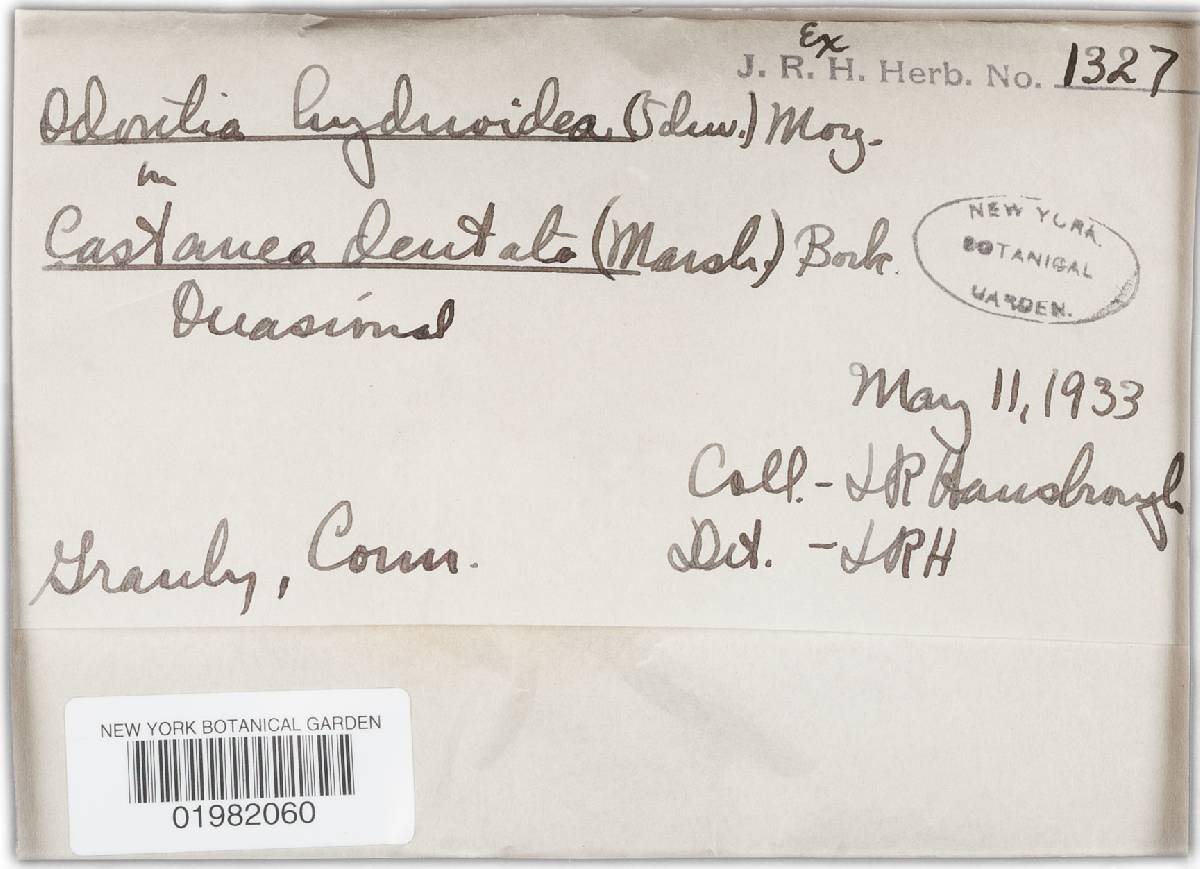 Ex
J. R. H. Herb. No. 1327
Odontia hydnoidea, () Morg.
on
Castanea dentata (Marsh.) Bork.
Occasional
NEW YORK
BOTANICAL
GARDEN.
May 11, 1933
Coll. - JR Hansbrough
Det. - JRH
Granby, Conn.
NEW YORK BOTANICAL GARDEN
01982060